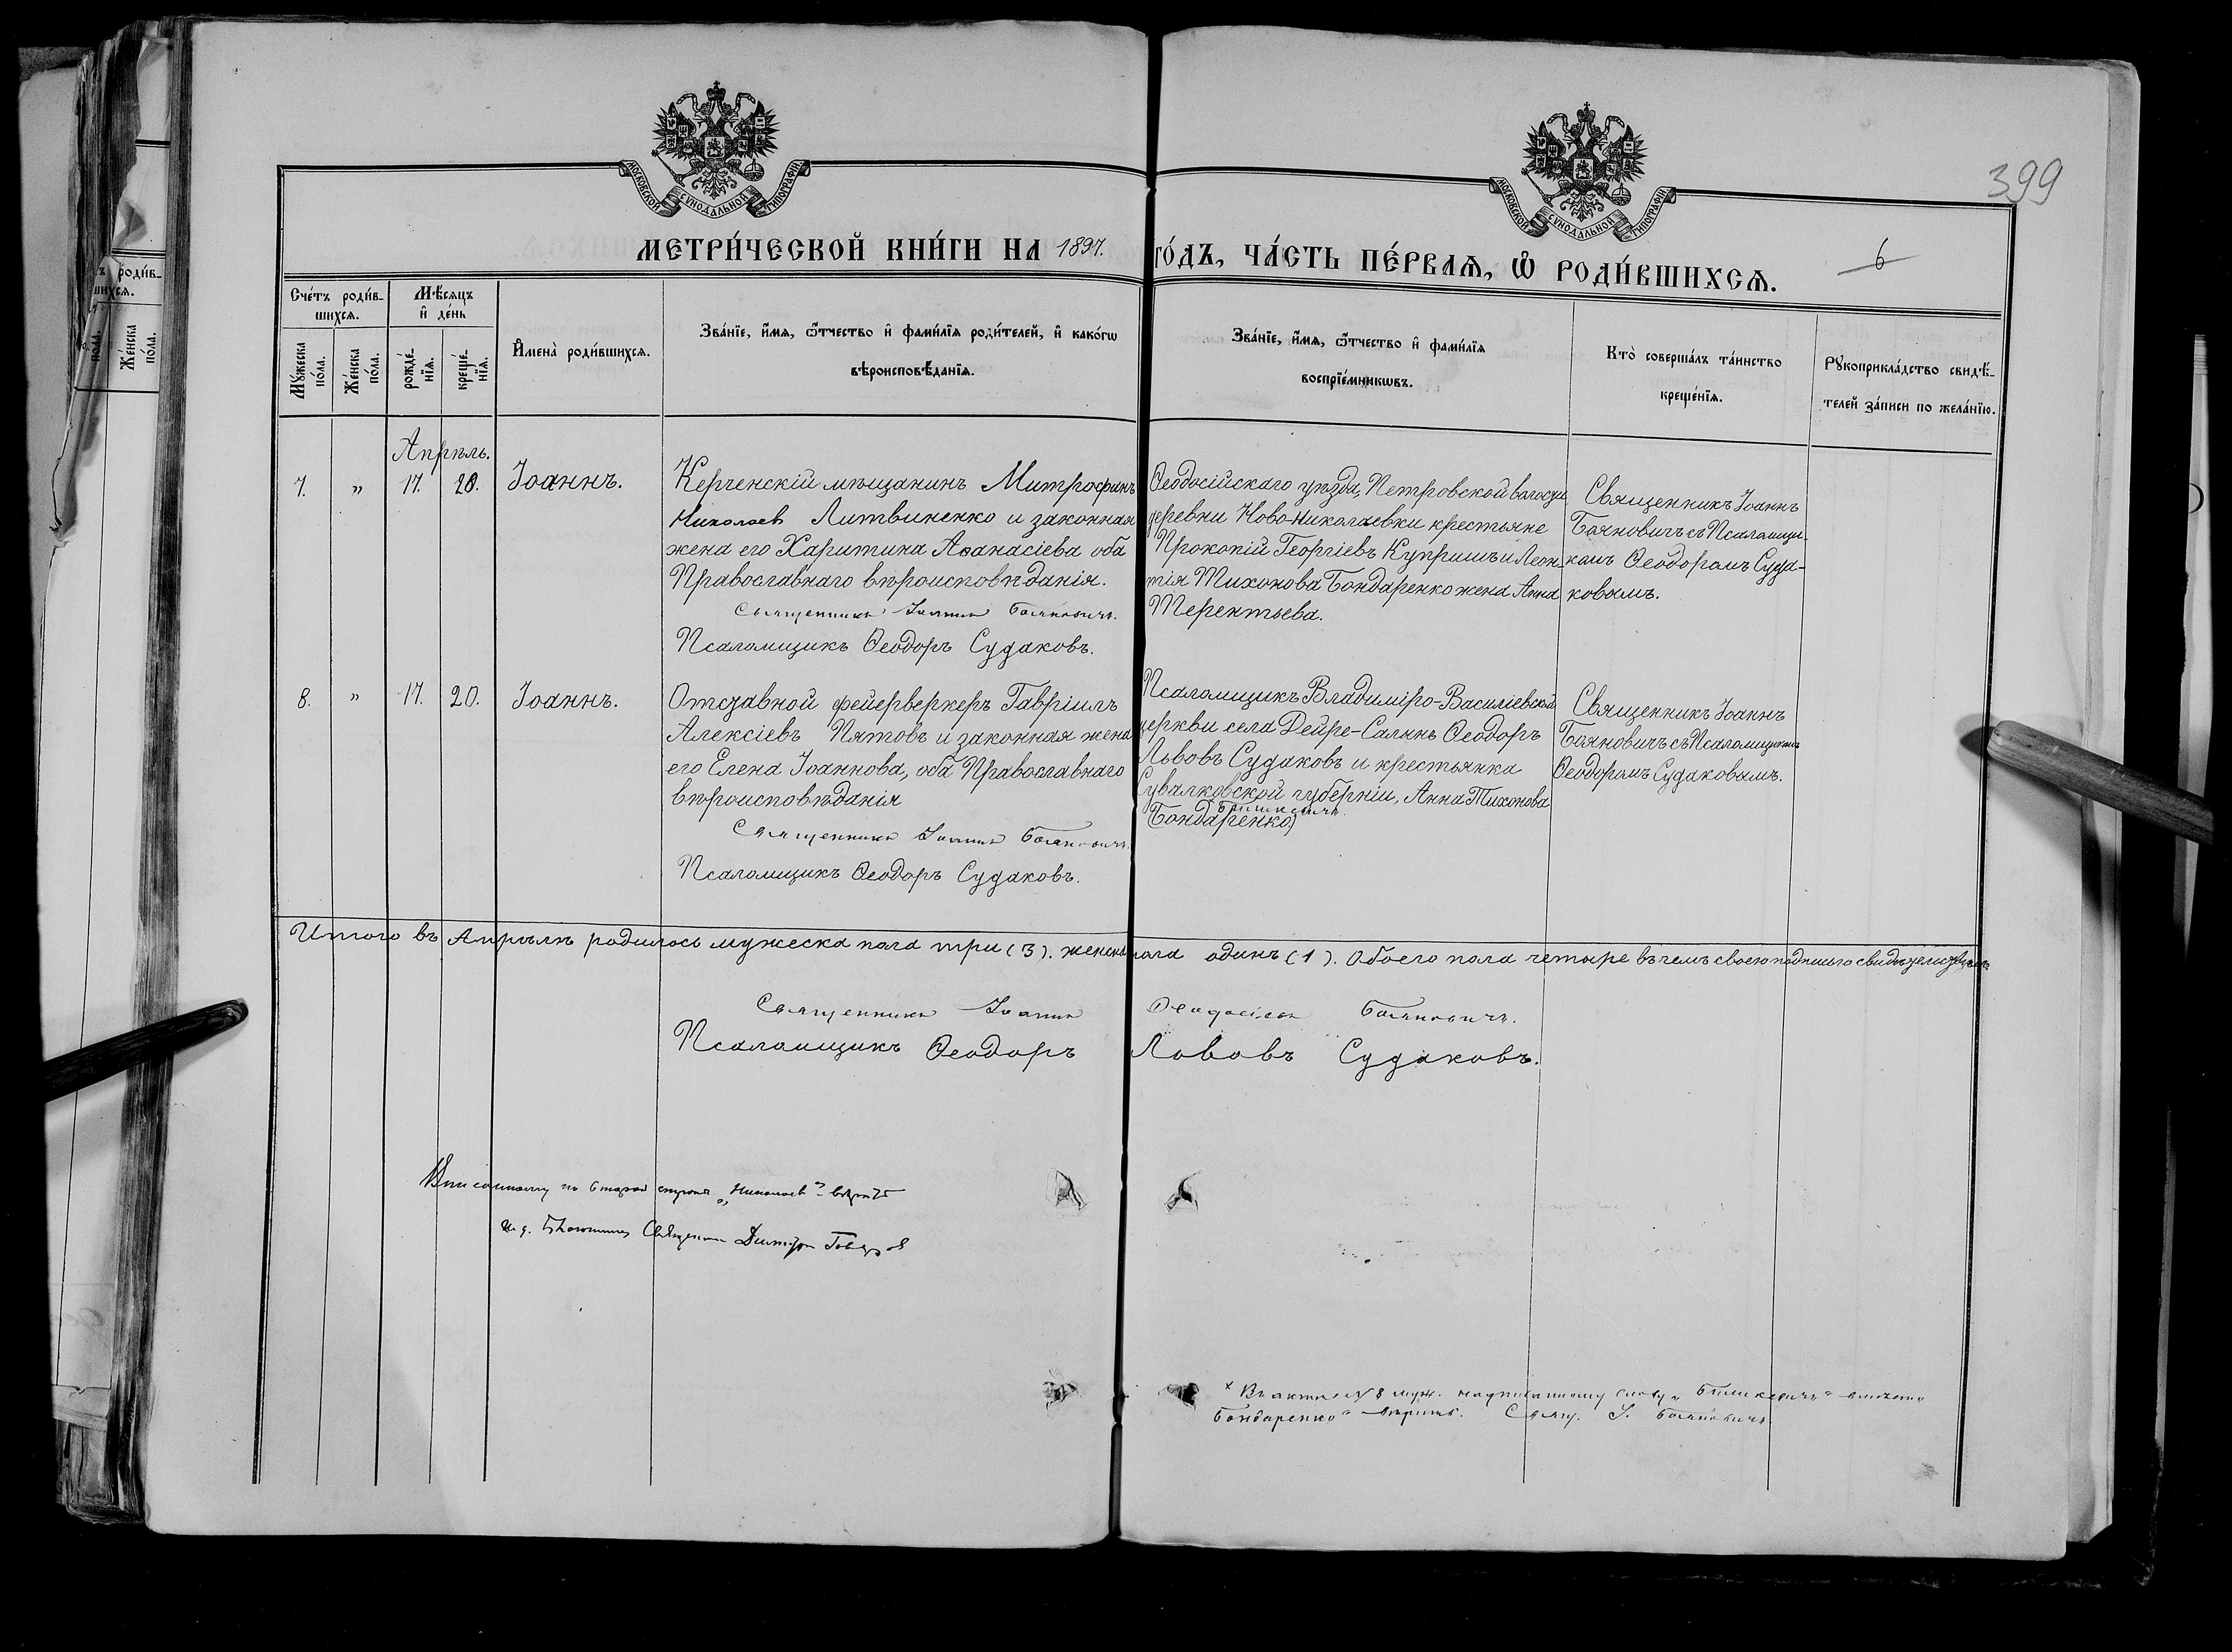 МОСКОВСКОЙ СУНОДАЛЬНОЙ ТИПОГРАФІИ.
МОСКОВСКОЙ СУНОДАЛЬНОЙ ТИПОГРАФІИ.
399
МЕТРИ́ЧЕСКОЙ КНИ́ГИ НА 1897. ГО́ДЪ, ЧА́СТЬ ПЕ́РВАѦ, Ѡ РОДИ́ВШИХСѦ.
6
Сче́тъ роди́в-
шихсѧ.
Мꙋ́жеска по́ла.
Же́нска по́ла.
Мѣ́сѧцъ
и҆ де́нь
рожде́-
нїѧ.
креще́-
нїѧ.
И҆мена̀ роди́вшихсѧ.
Зва́нїе, и҆́мѧ, ѻ҆́тчество и҆ фами́лїѧ роди́телей, и҆ како́гѡ
вѣроисповѣ́данїѧ.
Зва́нїе, и҆́мѧ, ѻ҆́тчество и҆ фами́лїѧ
воспрїе́мникѡвъ.
Кто̀ соверша́лъ та́инство
креще́нїѧ.
Рꙋкоприкла́дство свидѣ́-
телей за́писи по жела́нїю.
ъ роди́в-
шихсѧ.
по́ла.
Же́нска
по́ла.
Апрѣль.
7. " 17. 20. Іоаннъ.
Керченскій мѣщанинъ Митрофанъ
Николаев Литвиненко и законная
жена его Харитина Аѳанасіева оба
Православнаго вѣроисповѣданія.
Священникъ Іоаннъ Бояновичъ.
Псаломщикъ Ѳеодоръ Судаковъ.
Ѳеодосійскаго уѣзда, Петровской волости
деревни Ново-Николаевки крестьяне
Прокопій Георгіевъ Купришъ и Леон-
тія Тихонова Бондаренко жена Анна
Терентьева.
Священникъ Іоаннъ
Бояновичъ съ Псаломщи-
комъ Ѳеодоромъ Суда-
ковымъ.
8. " 17. 20. Іоаннъ.
Отставной фейерверкеръ Гавріилъ
Алексіевъ Пятовъ и законная жена
его Елена Іоаннова, оба Православнаго
вѣроисповѣданія
Священникъ Іоаннъ Бояновичъ.
Псаломщикъ Ѳеодоръ Судаковъ.
Псаломщикъ Владиміро-Василіевской
церкви села Дейре-Салынь Ѳеодоръ
Львовъ Судаковъ и крестьянка
Сувалковской губерніи, Анна Тихонова
Бондаренко)
Священникъ Іоаннъ
Бояновичъ съ Псаломщикомъ
Ѳеодоромъ Судаковымъ.
Итого въ Апрѣлѣ родилось мужеска пола три (3). женска пола одинъ (1). Обоего пола четыре въ чемъ своею подписью свидѣтельствуемъ
Священникъ Іоаннъ Ѳеодосіевъ Бояновичъ.
Псаломщикъ Ѳеодоръ Львовъ Судаковъ.
Вписанному на второй строкѣ „Николаев" вѣрить
И. д. Благочиннаго Священникъ Димитрій
x Въ актѣ № 8 муж. надписанному слову вмѣсто
Бондаренко" вѣрить. Свящ. І. Бояновичъ